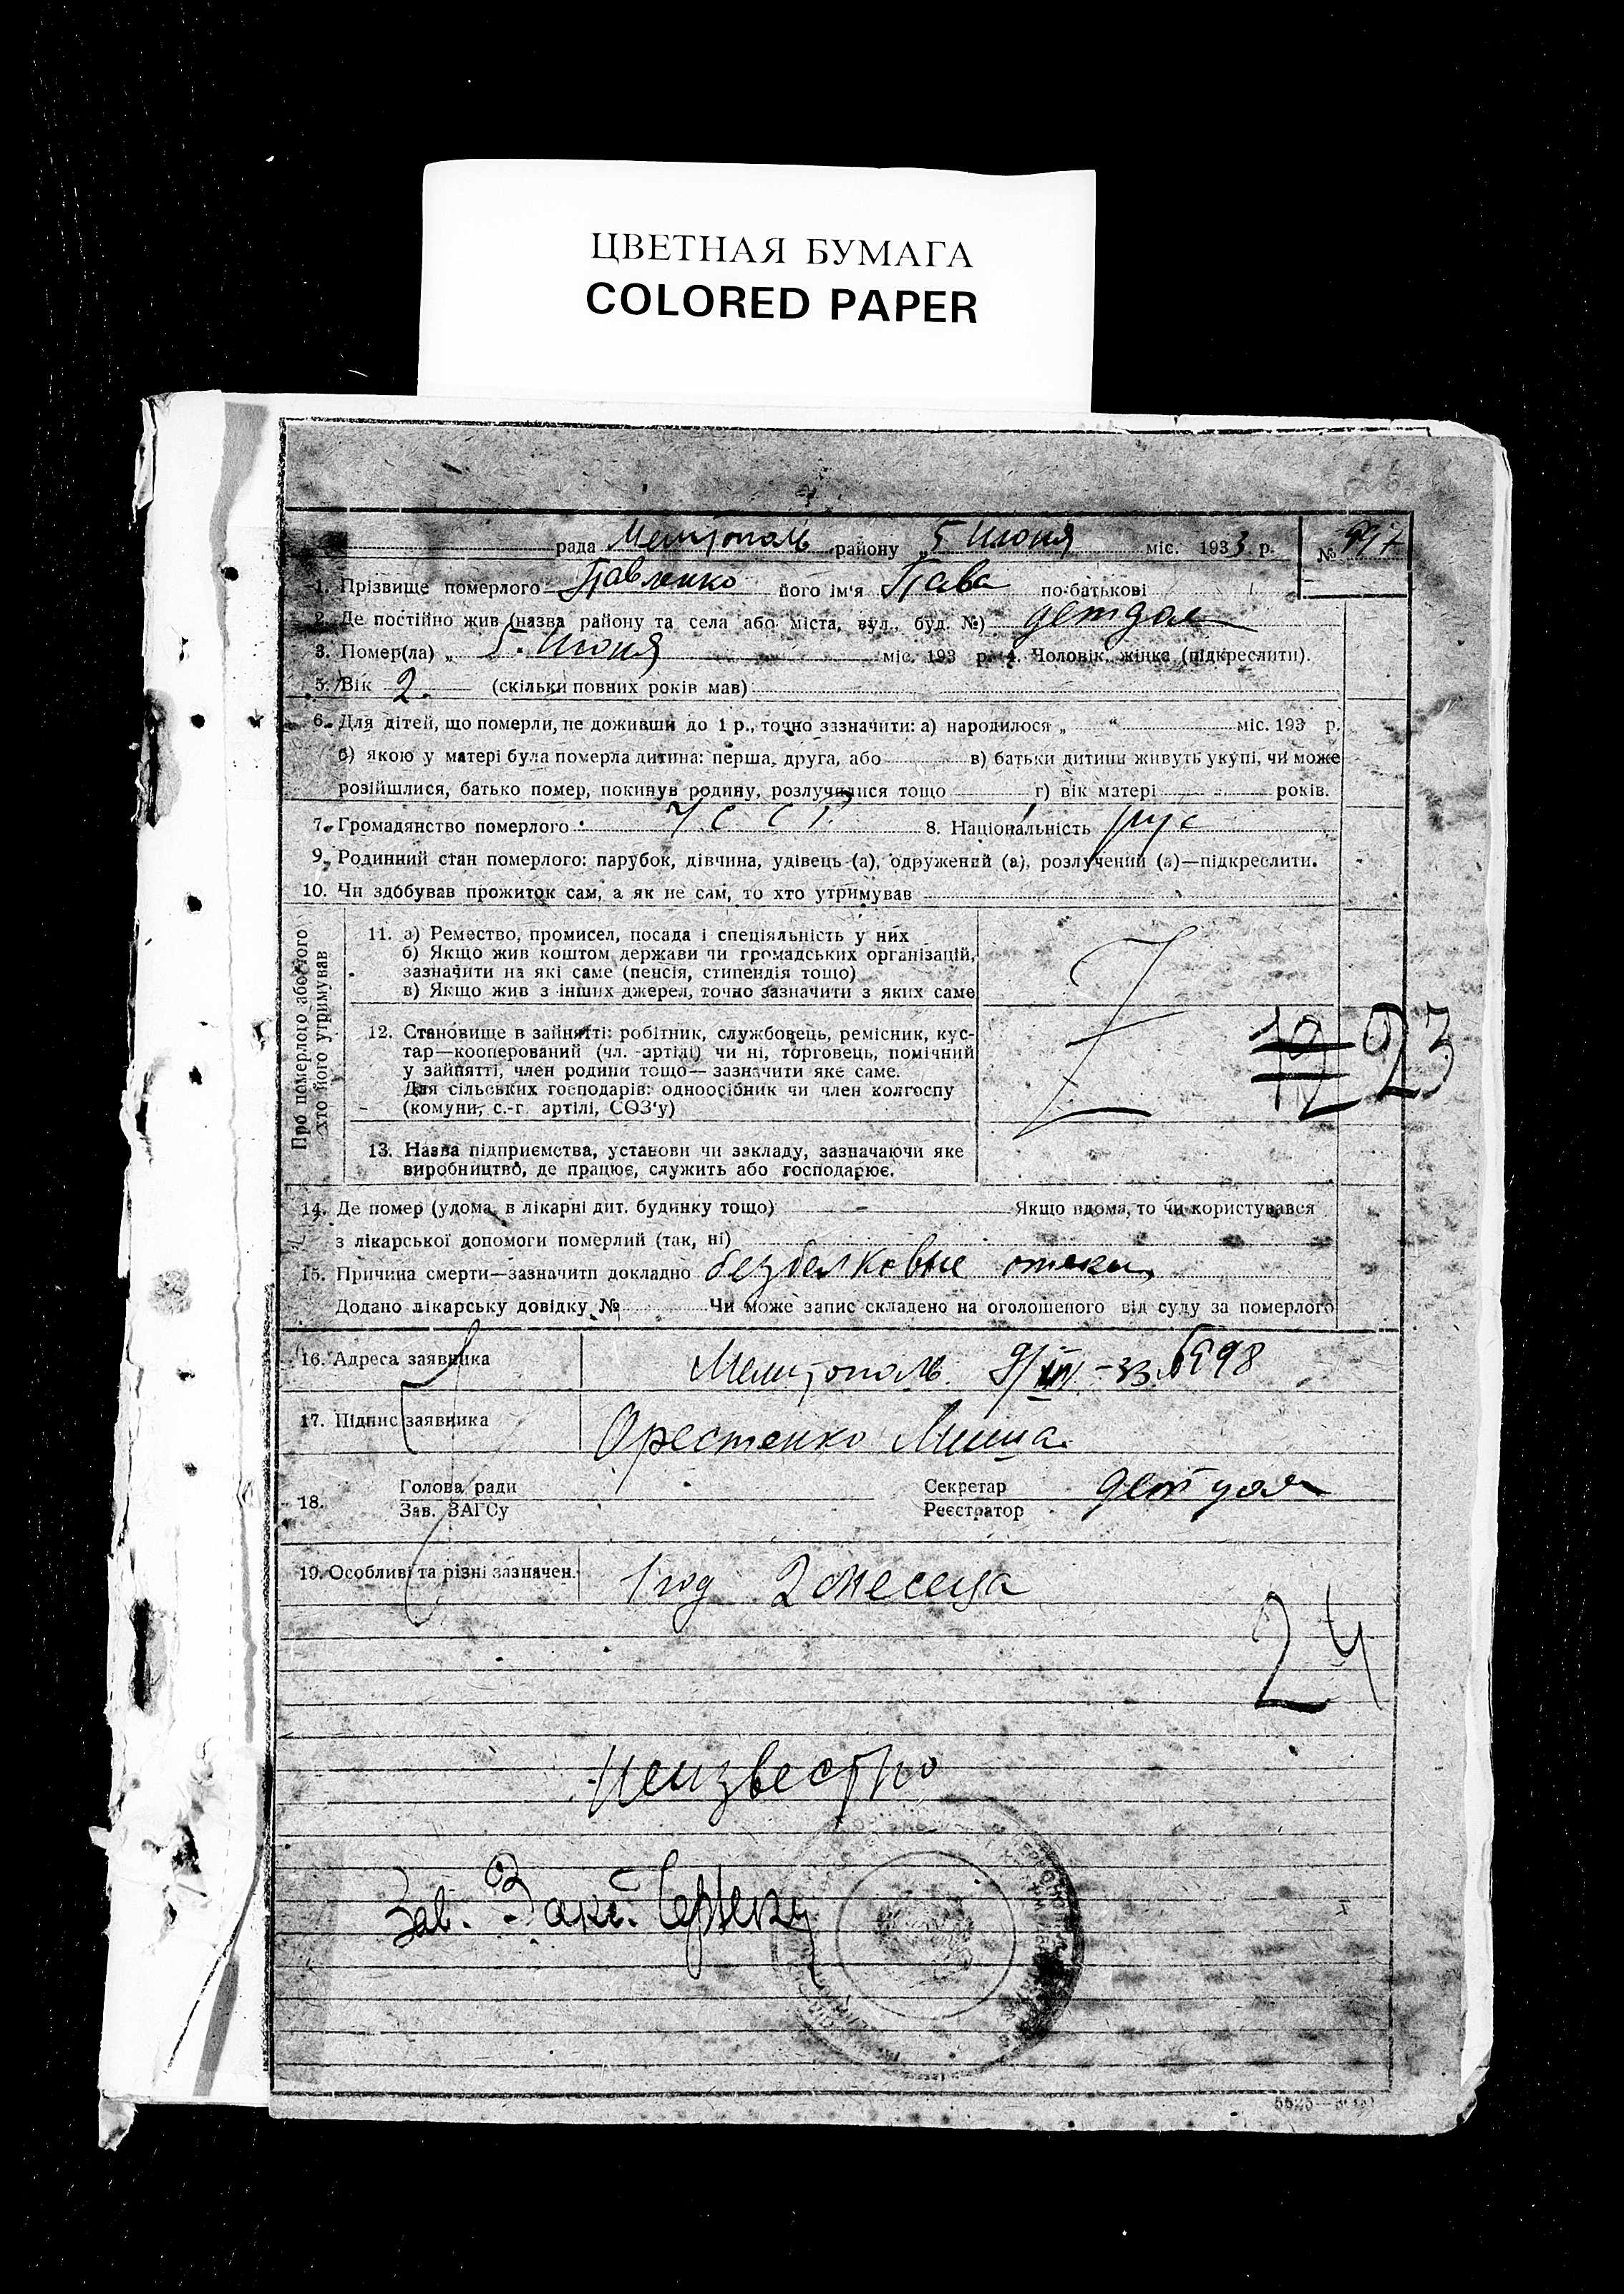 ЦВЕТНАЯ БУМАГА
COLORED PAPER
рада Мелитополь району „5 Июня міс. 1933 р. № 997
1. Прізвище померлого Павленко його ім'я Пава по-батькові
2. Де постійно жив (назва району та села або міста, вул., буд. №) детдом
3. Помер(ла) „ 5. Июня міс. 193 р. 4. Чоловік, жінка (підкреслити).
5. Вік 2. (скільки повних років мав)
6. Для дітей, що померли, не доживши до 1 р., точно зазначити: а) народилося „ “ міс. 193 р.
б) якою у матері була померла дитина: перша, друга, або в) батьки дитини живуть укупі, чи може
розійшлися, батько помер, покинув родину, розлучилися тощо г) вік матері років.
7. Громадянство померлого УССР. 8. Національність рус
9. Родинний стан померлого: парубок, дівчина, удівець (а), одружений (а), розлучений (а)—підкреслити.
10. Чи здобував прожиток сам, а як не сам, то хто утримував
Про померлого або того
хто його утримував
11. а) Ремество, промисел, посада і спеціяльність у них
б) Якщо жив коштом держави чи громадських організацій,
зазначити на які саме (пенсія, стипендія тощо)
в) Якщо жив з інших джерел, точно зазначити з яких саме
12. Становище в зайнятті: робітник, службовець, ремісник, кус-
тар—кооперований (чл. артілі) чи ні, торговець, помічний
у зайнятті, член родини тощо—зазначити яке саме.
Для сільських господарів: одноосібник чи член колгоспу
(комуни, с.-г. артілі, СОЗ'у)
23
13. Назва підприємства, установи чи закладу, зазначаючи яке
виробництво, де працює, служить або господарює.
14. Де помер (удома, в лікарні дит. будинку тощо) Якщо вдома, то чи користувався
з лікарської допомоги померлий (так, ні)
15. Причина смерти—зазначити докладно безбелковые отеки
Додано лікарську довідку № Чи може запис складено на оголошеного від суду за померлого
16. Адреса заявника Мелитополь. 998
17. Підпис заявника Орестенко Миша.
18. Голова ради Секретар детдом
Зав. ЗАГСу Реєстратор
19. Особливі та різні зазначен. 1 год 2 месеца
24
Неизвестно
Зав.